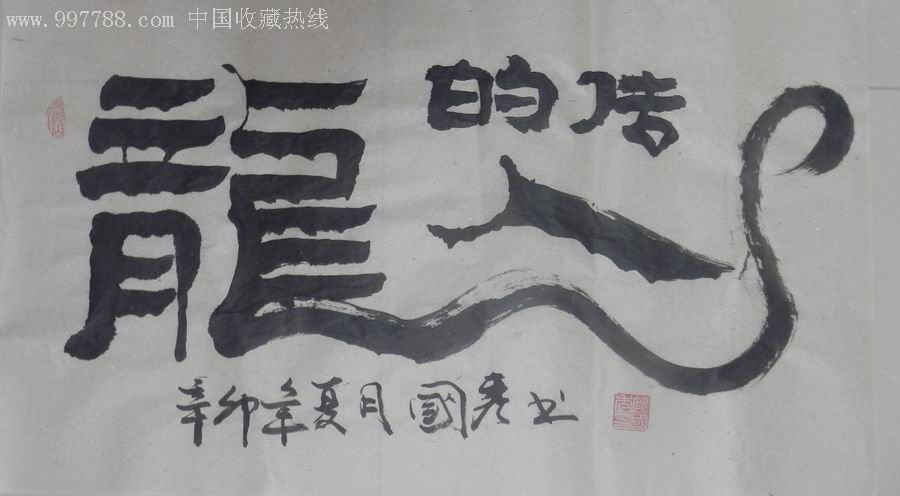 www.997788.com 中国收藏热线
龍的传人
辛卯年夏月國彦书